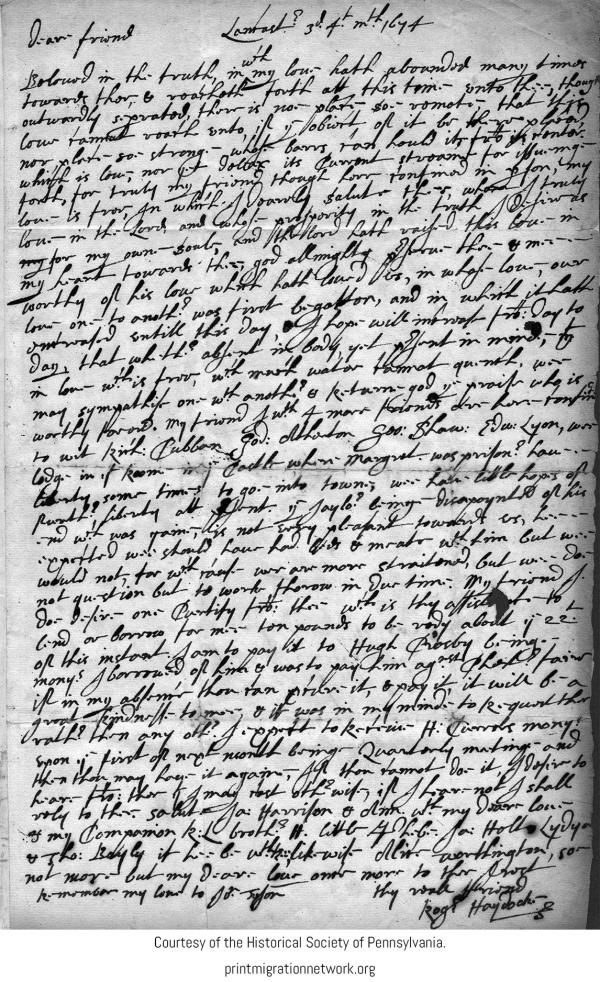 Deare friend Lancastr 3d 4th mth 1674
Beloved in the truth, in wth my love hath abounded many times
towards thee, & reacheth forth att this time unto thee, though
outwardly seprated, there is noe place soe remote, that this
love cannot reach unto, if ye object of it be there placed
nor place soe stronge whose barrs can hould its
which is love, nor yet doth its Current streame for issuinge
forth, for truly my friend though here confined in prson, my
love is free, In which I dearely salute thee, whom I truly
love in the Lord, and whose prosperity in the truth I desire as
my for my owne soule, and the lord hath raised this love in
my heart towards thee, god allmighty prserve thee & mee
worthy of his love which hath loved us, in whose love, our
love one to anothr was first begotten, and in which it hath
encreased untill this day & I hope will increst from day to
day, that whethr absent in body yet prsent in mind,
in love wth is free, wth much watre cannot quench, wee
may sympathise one wth anothr & returne god ye praise who is
worthy forevr. my friend I wth 4 more friends are here confin
to wit Rich: Cubban God: Atherton Geo: Shaw: Edw: Lyon, wee
lodge in ye roome in ye Castle where Margret was prisonr have
liberty some times to goe into towne, wee have little hopes of
furthr liberty att prsent ye Jaylor being disapoynted of his
end wch was gaine, is not very pleasant towards us, hee
expected wee should have had beds & meate wth him but wee
would not, for wch cause wee are more straitned, but wee doe
not question but to worke thorow in due time. My friend I
doe desire one Curtesy from thee wch is thy assistance to
lend or borrow for mee ten pounds to be redy about ye 22th
of this instant I am to pay it to Hugh Crosby being
monys I borrowed of him & was to pay him agnst Chestr faire
if in my absence thou can procure it, & pay it, it will be a
great kindnesse to mee, & it was in my mind to request thee
rathr then any othr. I expect to receive H: Currels monys
upon ye first of next month being Quarterly meeting and
then thou may have it againe, If thou cannot doe it, I desire to
heare from thee yt I may cast othrwise, if I heare not I shall
rely to thee, salute Ja: Harrison & Ann wth my deare love
& my Companion R: L brothr H: little Phebe Ja: Holt Lydya
& Tho: Bayly if hee be wth likewise Alice worthington, soe
not more but my deare love once more to thee I rest
Remember my love to thy reall friend
Rogr Haydocke
Courtesy of the Historical Society of Pennsylvania.
printmigrationnetwork.org